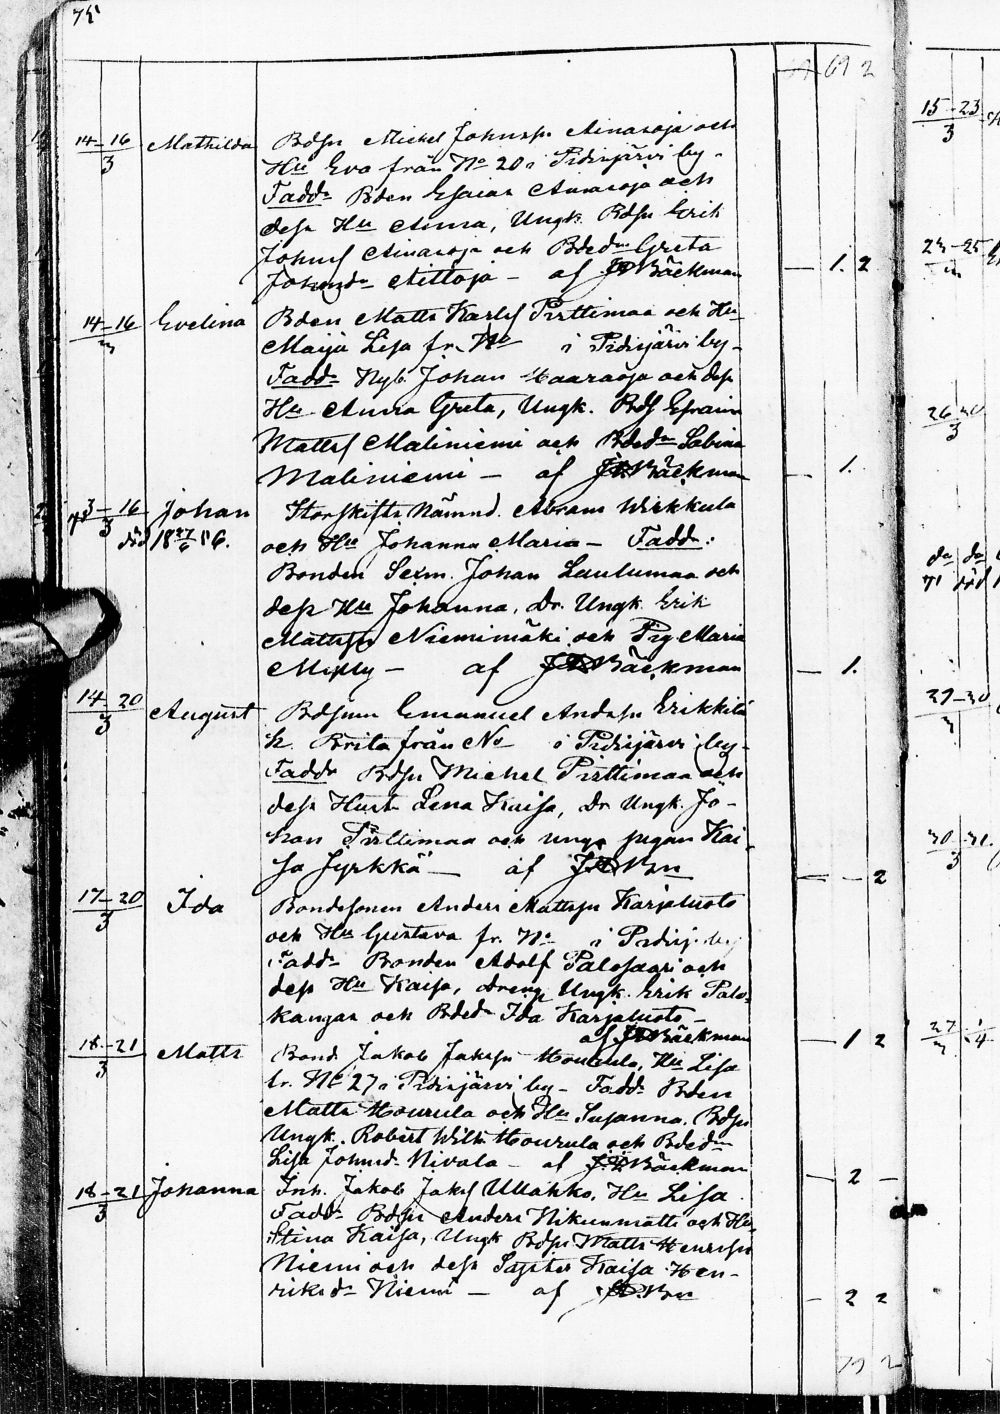 75
69 2
14–16/3 Mathilda Bdsn Michel Johnsn Ainasoja och
Hu Eva från No 20 i Pidisjärvi by –
Fadd: Bden Esaias Ainasoja och
dess Hu Anna, Ungk. Bdsn Erik
Johns Ainasoja och Bdedr Greta
Johnsdr Aittoja – af Bäckman — 1. 2
14–16/3 Evelina Bden Matts Karls Pirttimaa och Hu
Maija Lisa fr. No i Pidisjärvi by –
Fadd: Nyb. Johan Haaraoja och dess
Hu Anna Greta, Ungk. Bds Efraim
Matts Maliniemi och Bdedr Sabina
Maliniemi – af Bäckman – 1.
3–16/3 Johan Storskifts Nämnd. Abram Wirkkula
död 18 27/6 86. och Hu Johanna Maria – Fadd:
Bonden Sexm. Johan Laulumaa och
dess Hu Johanna, Dr. Ungk. Erik
Mattsn Niemimäki och Pig Maria
– af Bäckman — 1.
14–20/3 August Bdsnn Emanuel Andsn Erikkilä
h. Brita från No i Pidisjärvi by –
Fadd: Bdsn Michel Pirttimaa och
dess Hust Lena Kaisa, Dr Ungk. Jo-
han Pirttimaa och unga pigan Kai-
sa Jyrkkä – af Bn — – 2
17–20/3 Ida Bondesonen Anders Mattsn Karjaluoto
och Hu Gustava fr. No i Pidisj. by
Fadd: Bonden Adolf Palosaari och
dess Hu Kaisa, dreng Ungk. Erik Palo-
kangas och Bdedr Ida Karjaluoto –
af Bäckman – 1 2
18–21/3 Matts Bond. Jakob Jakssn Hourula, Hu Lisa
fr. No 27 i Pidisjärvi by – Fadd: Bden
Matts Hourula och Hu Susanna, Bdsn
Ungk. Robert Wilh. Hourula och Bdedr
Lisa Johnsdr Nivala – af Bäckman — 2 –
18–21/3 Johanna Inh. Jakob Jaks Ullakko, Hu Lisa
Fadd: Bdsn Anders Nikunmatti och Hu
Stina Kaisa, Ungk Bdsn Matts Henrssn
Niemi och dess Syster Kaisa Hen-
riksdr Niemi – af Bn – 2 2
15–23/3
23–25
26–30/3
da da
71 död
27–30
30–31/3
27 1/4